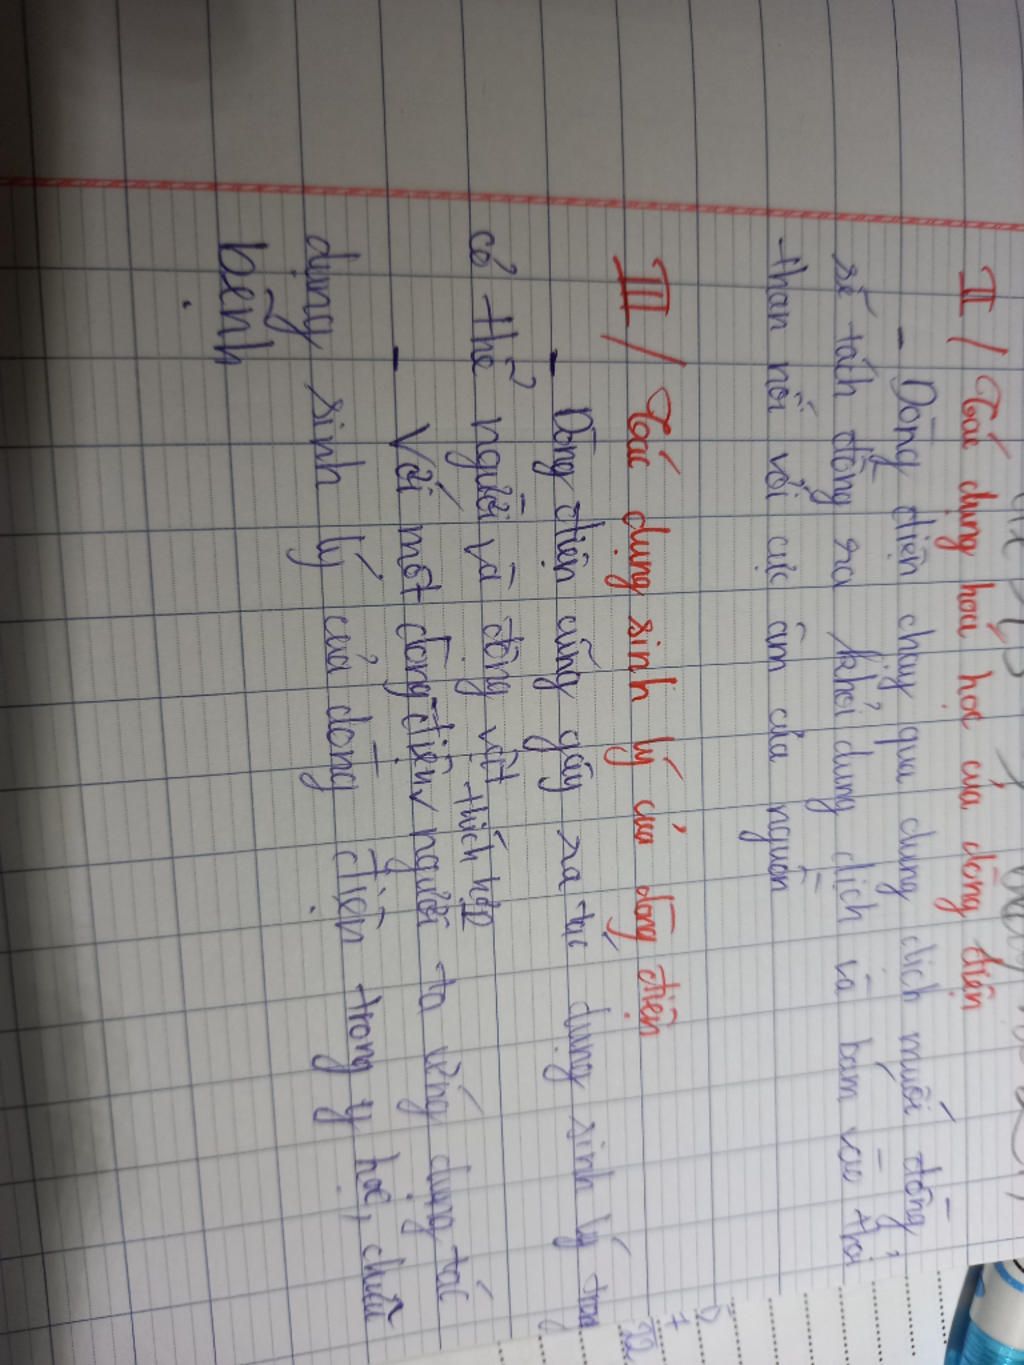 II / Tác dụng hoá học của dòng điện
- Dòng điện chạy qua dung dịch muối đồng
sẽ tách đồng ra khỏi dung dịch và bám vào thỏi
than nối với cực âm của nguồn
III / Tác dụng sinh lý của dòng điện
- Dòng điện cũng gây ra tác dụng sinh lý trong
cơ thể người và động vật
thích hợp
- Với một dòng điện v người ta ứng dụng tác
dụng sinh lý của dòng điện trong y học, chữa
bệnh